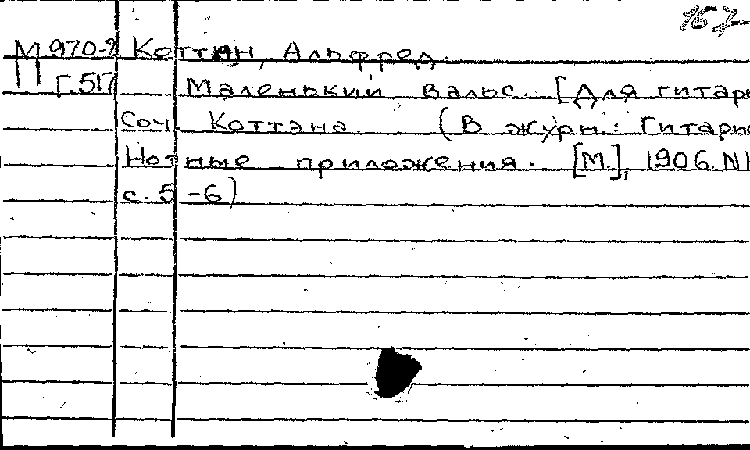 167
М 970-2 Коттин, Альфред.
Г.517 Маленький вальс. [Для гитары
Соч. Коттена (В журн.: Гитарис
Нотные приложения. [М.], 1906. N1
с. 5-6)